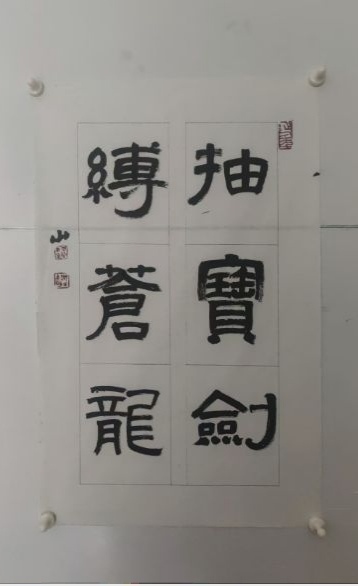 抽寶劍
縛蒼龍
山